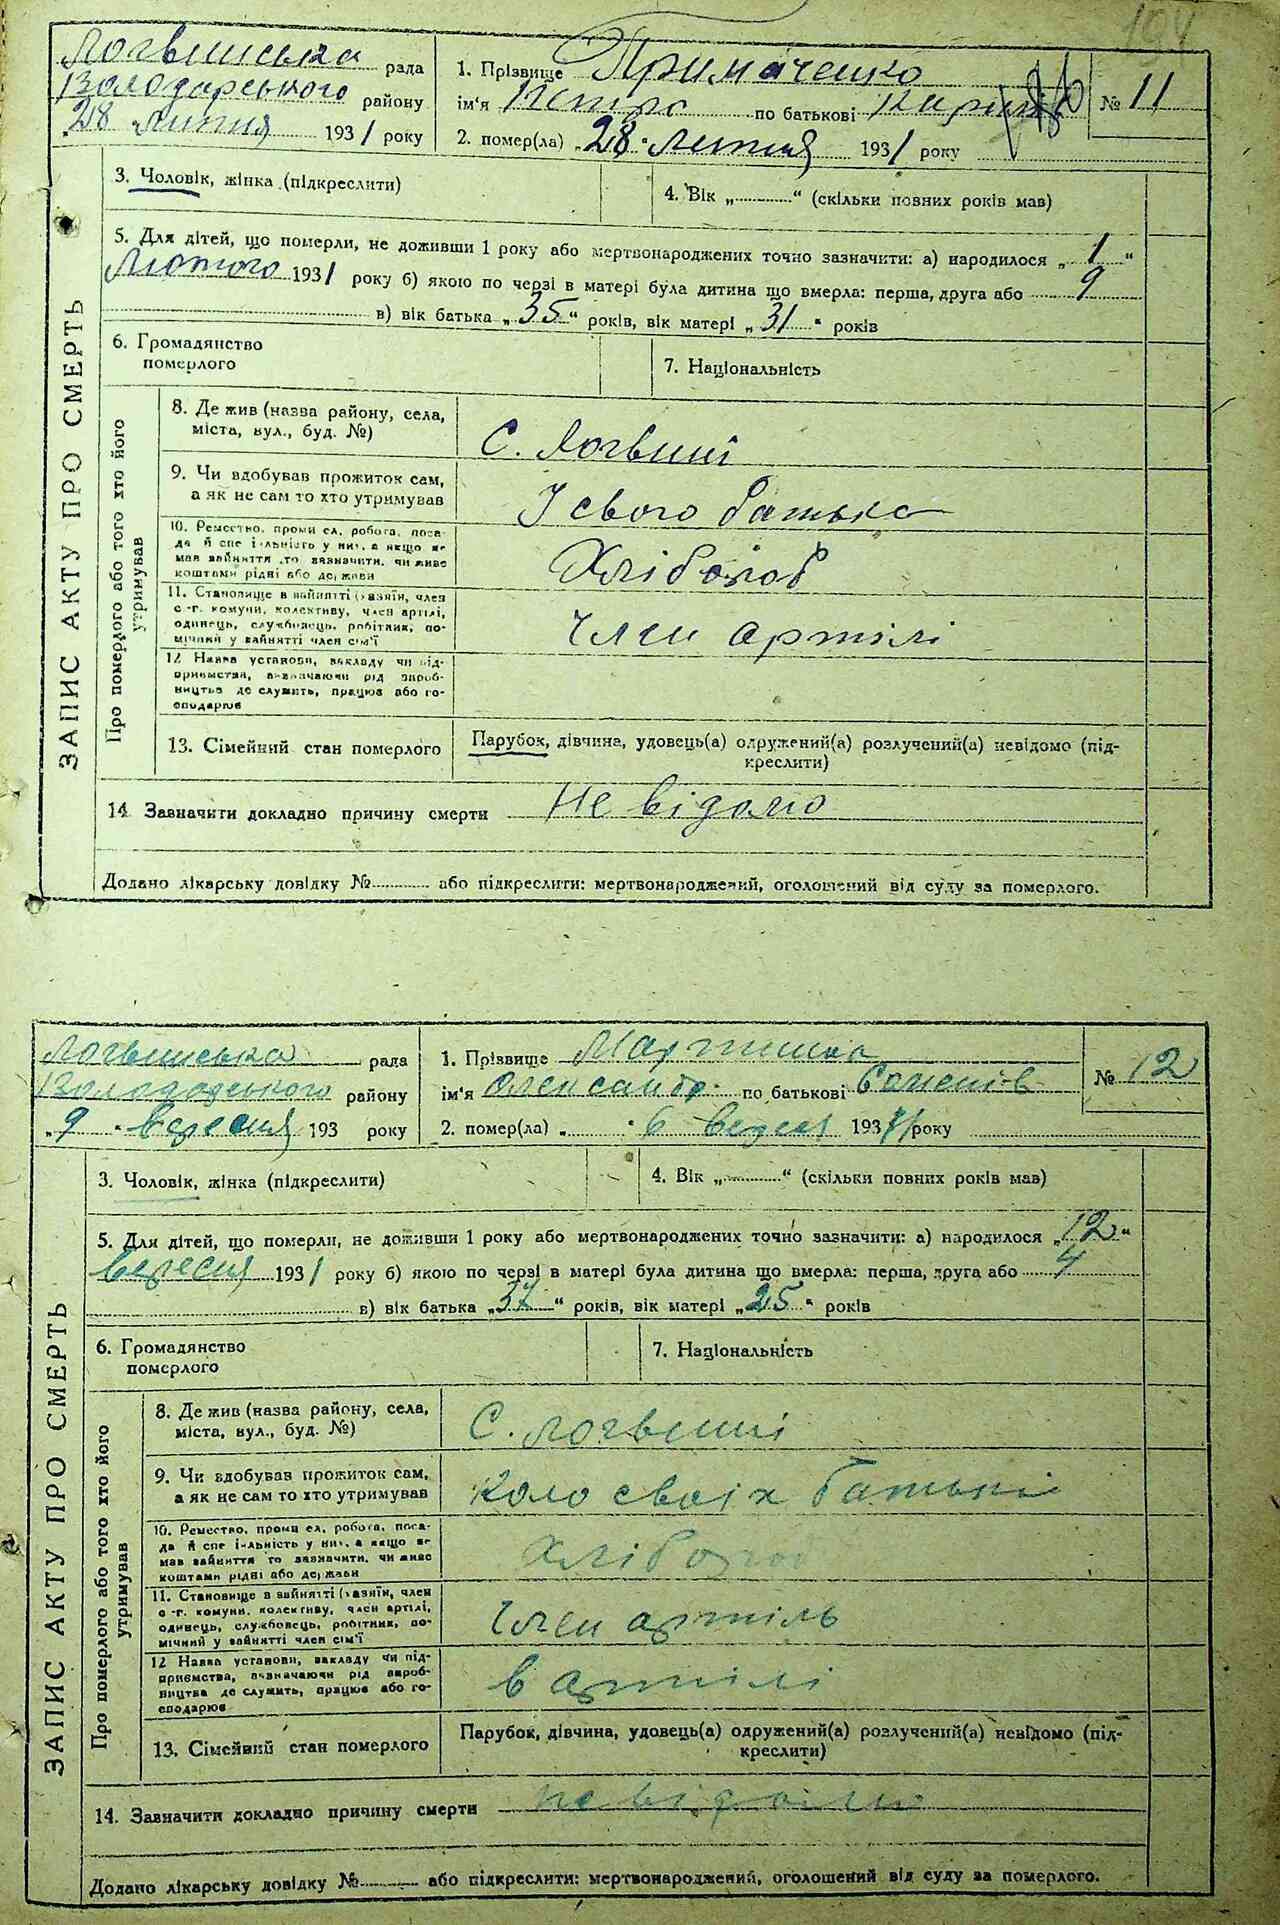 194
Логвинська рада
Володарського району
28 липня 1931 року
1. Прізвище Примаченко
ім'я Петро по батькові
№ 11
2. помер(ла) „28“ липня 1931 року
3. Чоловік, жінка (підкреслити)
4. Вік „ “ (скільки повних років мав)
5. Для дітей, що померли, не доживши 1 року або мертвонароджених точно зазначити: а) народилося „1“
Лютого 1931 року б) якою по черзі в матері була дитина що вмерла: перша, друга або 9
в) вік батька „35“ років, вік матері „31“ років
6. Громадянство
померлого
7. Національність
ЗАПИС АКТУ ПРО СМЕРТЬ
Про померлого або того хто його
утримував
8. Де жив (назва району, села,
міста, вул., буд. №)
С. Логвині
9. Чи вдобував прожиток сам,
а як не сам то хто утримував
У свого батька
10. Ремество, промисел, робота, поса-
да й спеціальність у них, а якщо не
мав зайняття то зазначити, чи живе
коштами рідні або держави
Хлібороб
11. Становище в зайнятті (хазяїн, член
с-г. комуни, колективу, член артілі,
одинець, службовець, робітник, по-
мічний у зайнятті член сім'ї
Член артілі
12 Назва установи, закладу чи під-
приємства, визначаючи рід вироб-
ництва де служить, працює або го-
сподарює
13. Сімейний стан померлого
Парубок, дівчина, удовець(а) одружений(а) розлучений(а) невідомо (під-
креслити)
14. Зазначити докладно причину смерти Не відомо
Додано лікарську довідку № або підкреслити: мертвонароджений, оголошений від суду за померлого.
Логвинська рада
Володарського району
„9“ вересня 193 року
1. Прізвище
ім'я Олександр по батькові
№ 12
2. помер(ла) „ “ 6 вересня 1931 року
3. Чоловік, жінка (підкреслити)
4. Вік „ “ (скільки повних років мав)
5. Для дітей, що померли, не доживши 1 року або мертвонароджених точно зазначити: а) народилося „12“
вересня 1931 року б) якою по черзі в матері була дитина що вмерла: перша, друга або 4
в) вік батька „37“ років, вік матері „25“ років
6. Громадянство
померлого
7. Національність
ЗАПИС АКТУ ПРО СМЕРТЬ
Про померлого або того хто його
утримував
8. Де жив (назва району, села,
міста, вул., буд. №)
С. Логвині
9. Чи вдобував прожиток сам,
а як не сам то хто утримував
Коло своїх батьків
10. Ремество, промисел, робота, поса-
да й спеціальність у них, а якщо не
мав зайняття то зазначити, чи живе
коштами рідні або держави
Хлібороб
11. Становище в зайнятті (хазяїн, член
с-г. комуни, колективу, член артілі,
одинець, службовець, робітник, по-
мічний у зайнятті член сім'ї
Член артіль
12 Назва установи, закладу чи під-
приємства, визначаючи рід вироб-
ництва де служить, працює або го-
сподарює
в артілі
13. Сімейний стан померлого
Парубок, дівчина, удовець(а) одружений(а) розлучений(а) невідомо (під-
креслити)
14. Зазначити докладно причину смерти
Додано лікарську довідку № або підкреслити: мертвонароджений, оголошений від суду за померлого.